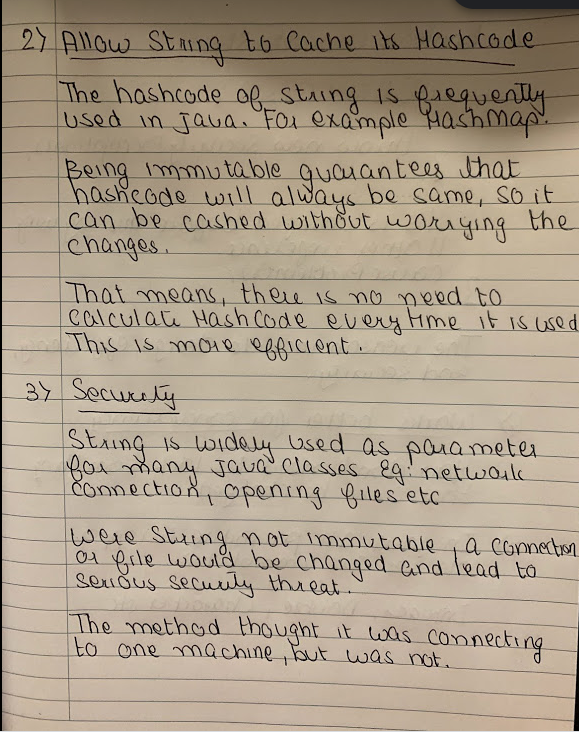 2) Allow String to Cache its Hashcode
The hashcode of string is frequently
used in Java. For example Hashmap.
Being immutable guarantees that
hashcode will always be same, so it
can be cashed without worrying the
changes.
That means, there is no need to
calculate HashCode everytime it is used
This is more efficient.
3) Security
String is widely used as parameter
for many Java classes Eg: network
connection, opening files etc
Were String not immutable, a connection
or file would be changed and lead to
serious security threat.
The method thought it was connecting
to one machine, but was not.